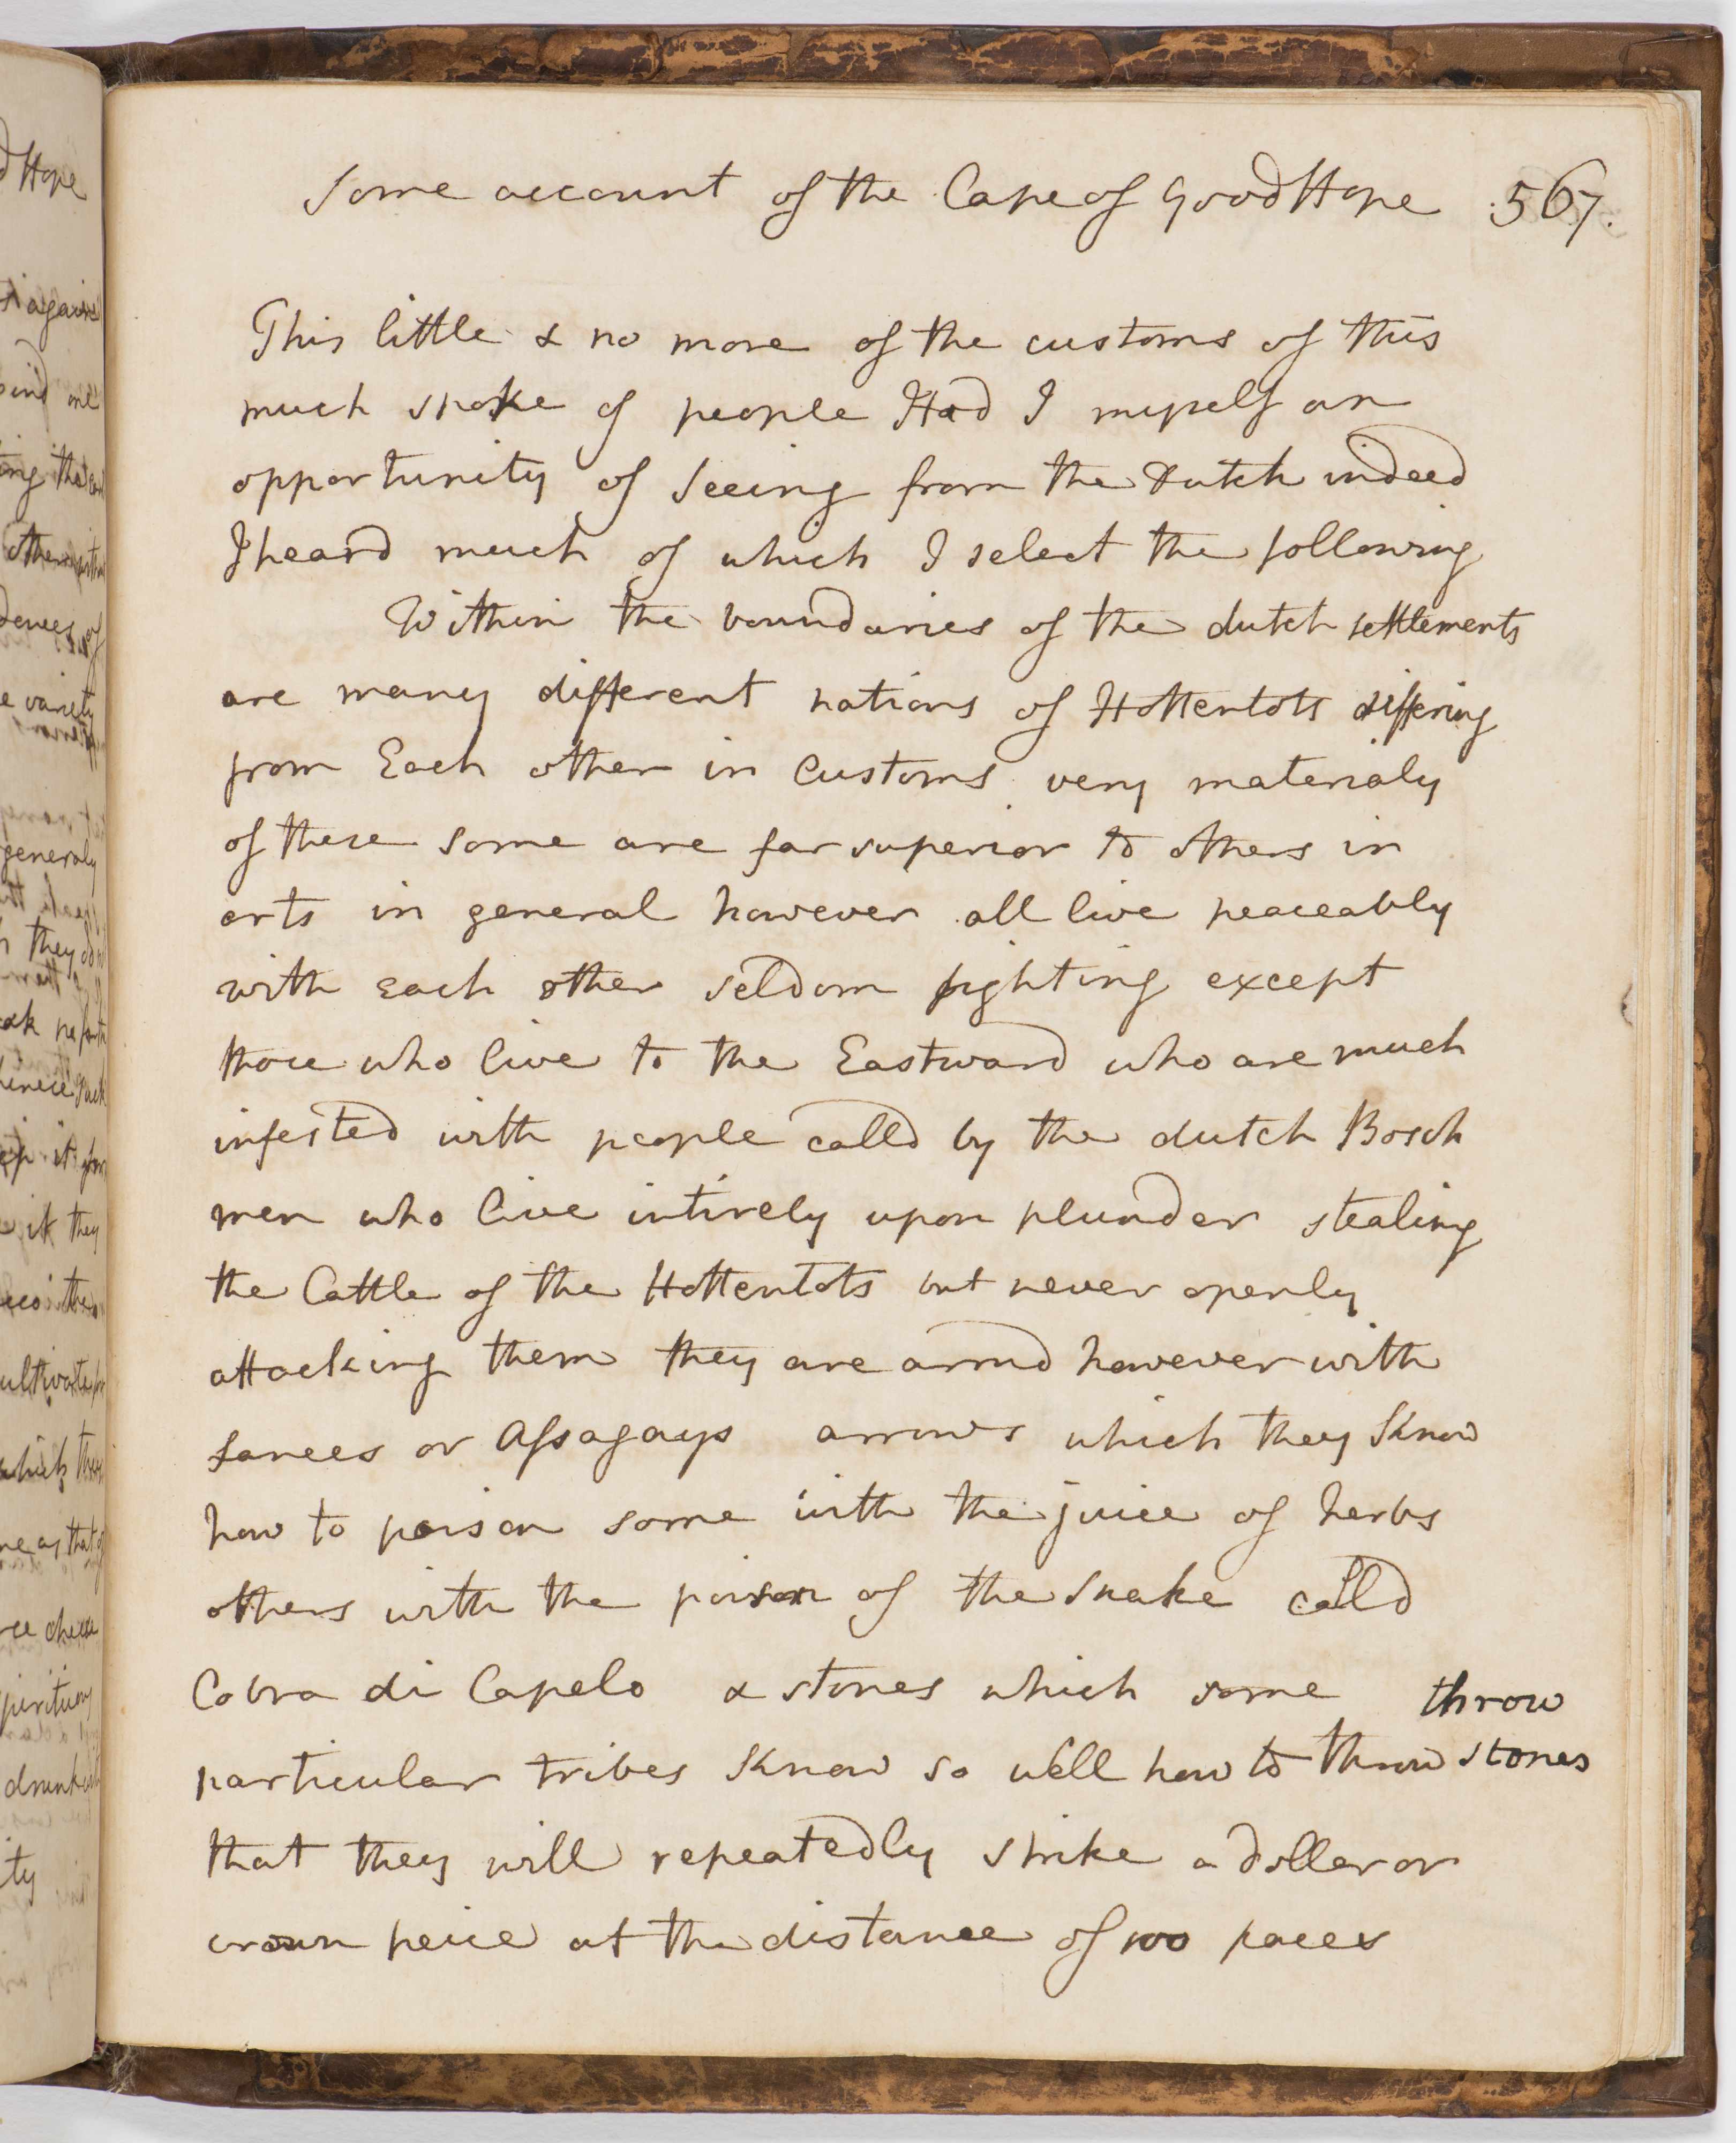 Some account of the Cape of Good Hope 567.
This little & no more of the customs of this
much spoke of people Had I myself an
opportunity of Seeing from the Dutch indeed
I heard much of which I select the following
Within the boundaries of the dutch settlements
are many different nations of Hottentots differing
from Each other in Customs very materialy
of these some are far superior to others in
arts in general however all live peaceably
with each other seldom fighting except
those who live to the Eastward who are much
infested with people calld by the dutch Bosch
men who live intirely upon plunder stealing
the Cattle of the Hottentots but never openly
attacking them they are armd however with
Lances or Assagays arrows which they Know
how to poison some with the juice of herbs
others with the poison of the Snake calld
Cobra di Capelo & stones which some throw
particular tribes Know so well how to throw stones
that they will repeatedly strike a doller or
crown peice at the distance of 100 paces